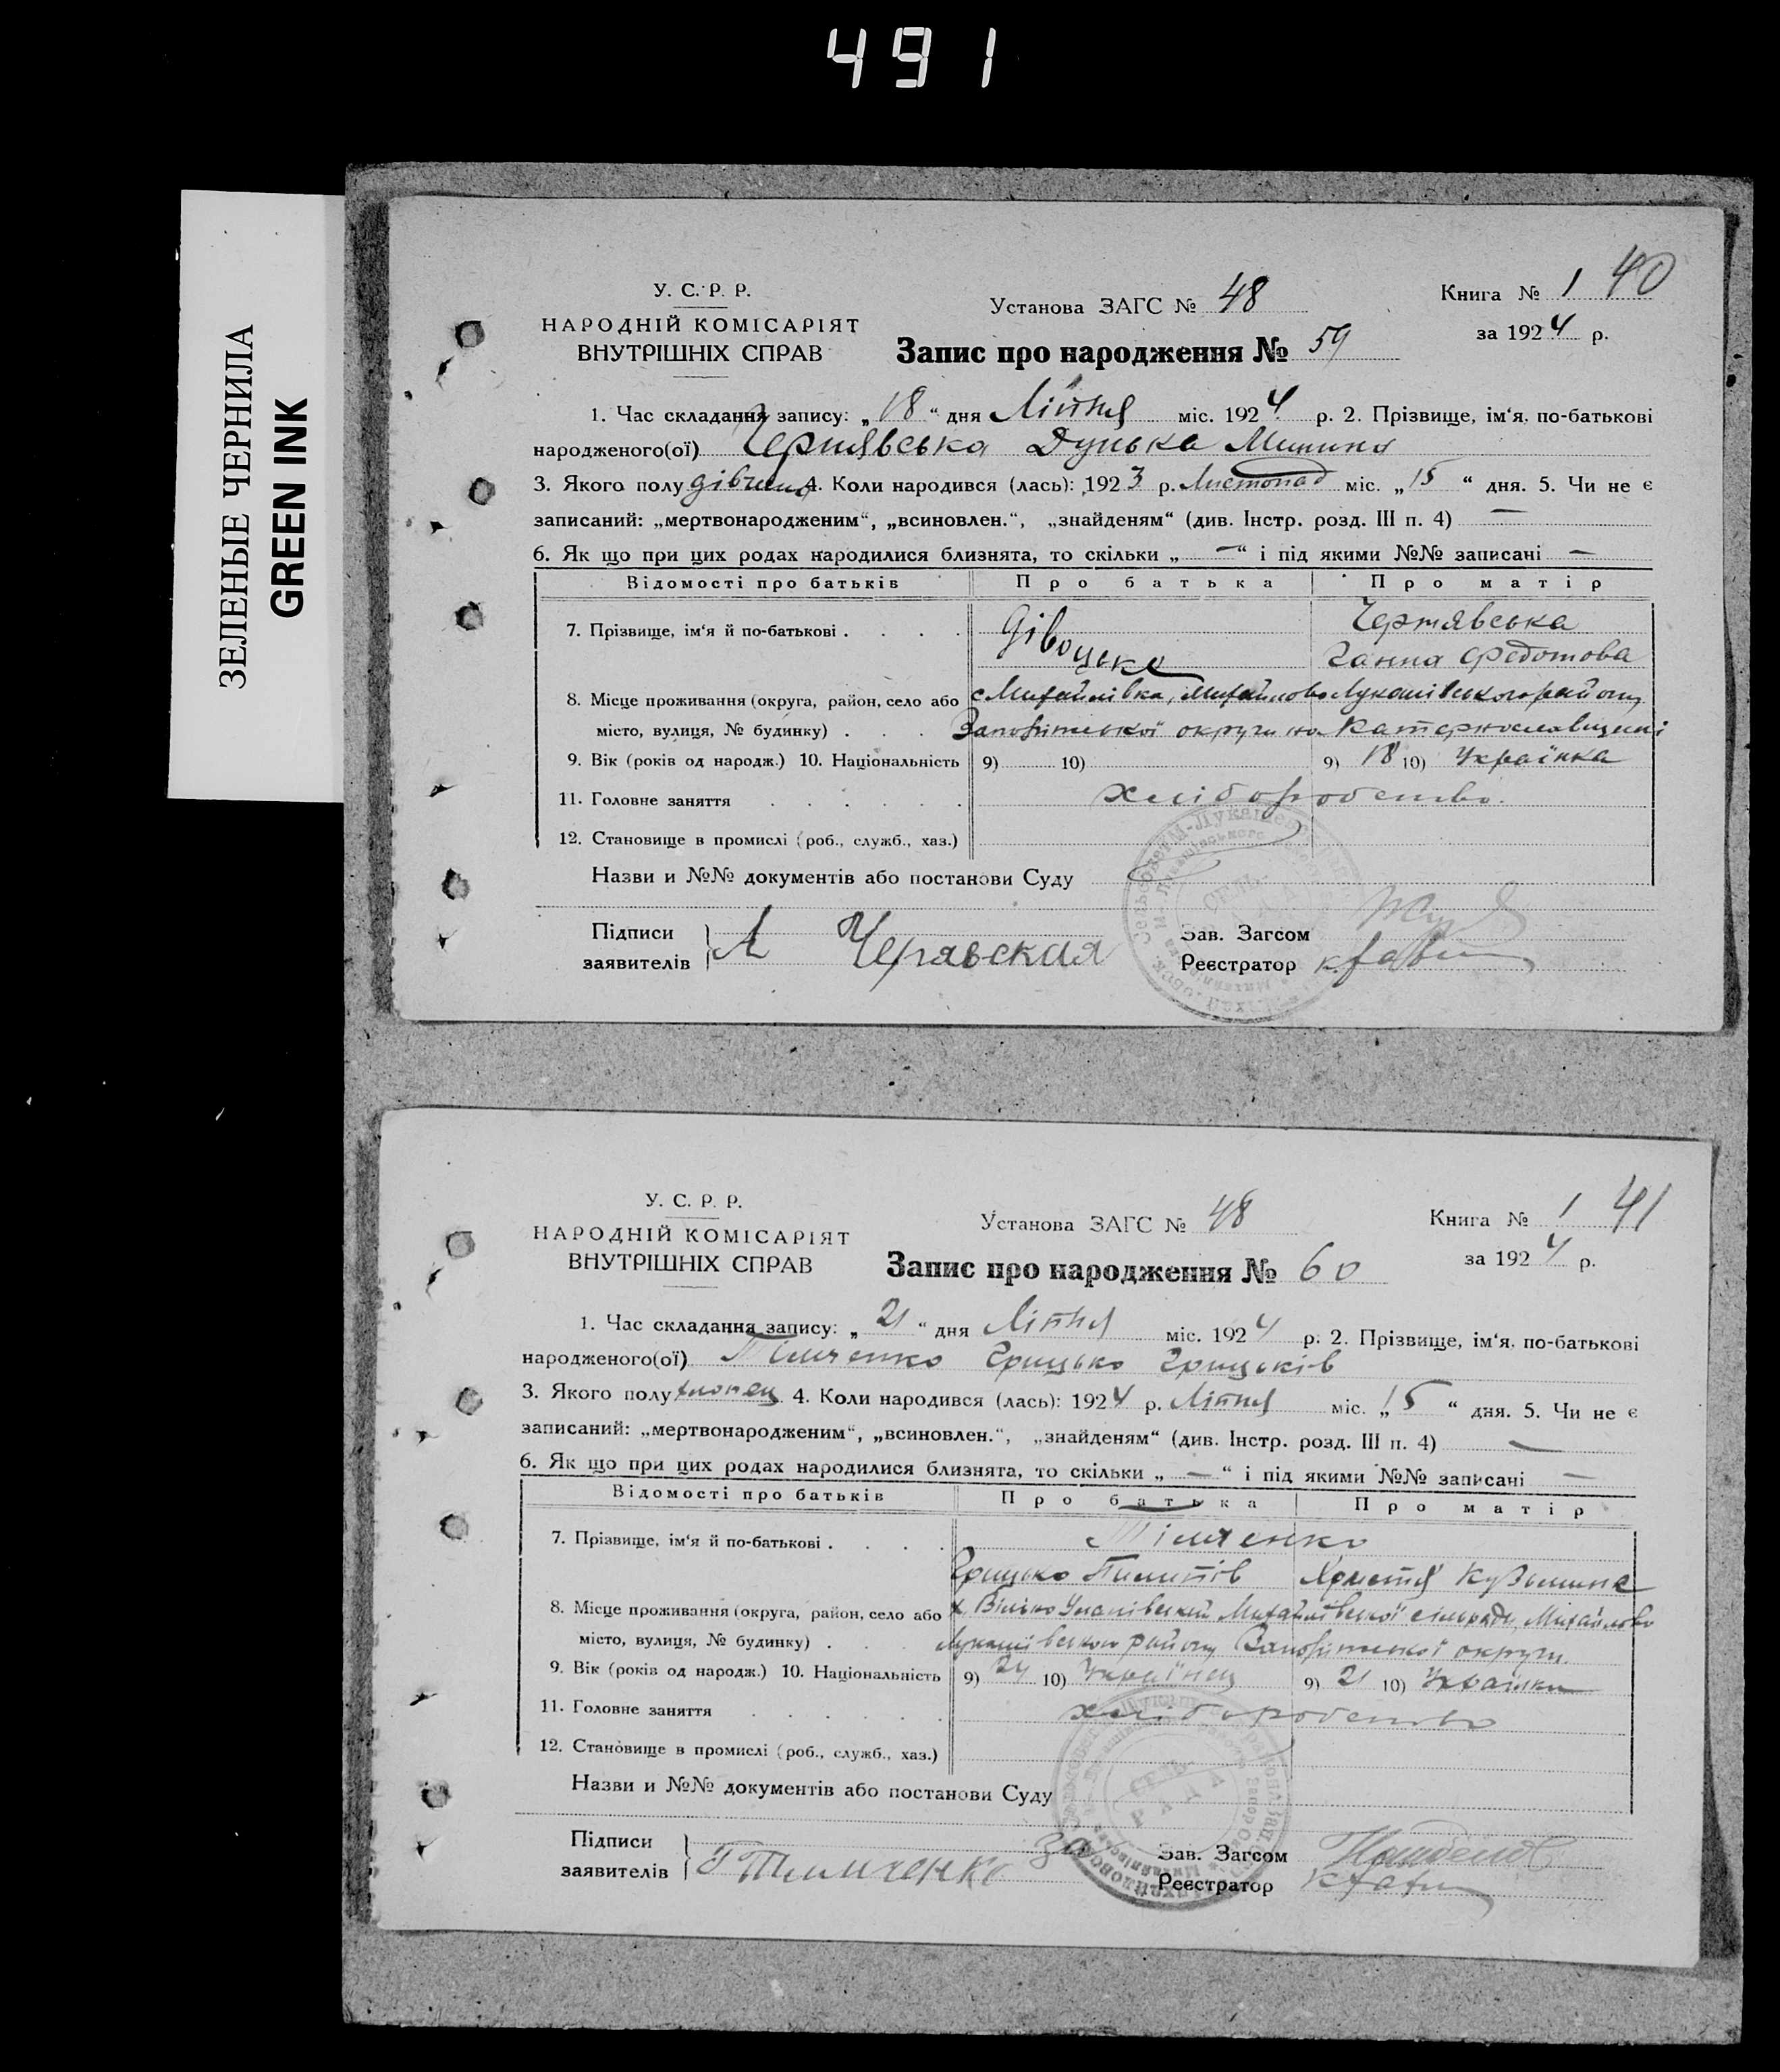 491
ЗЕЛЕНЫЕ ЧЕРНИЛА
GREEN INK
У. С. Р. Р.
НАРОДНІЙ КОМІСАРІЯТ
ВНУТРІШНІХ СПРАВ
Установа ЗАГС № 48
Книга № 1 40
за 1924 р.
Запис про народження № 59
1. Час складання запису: „18“ дня Липня міс. 1924 р. 2. Прізвище, ім‘я, по-батькові
народженого(ої) Чернявська Дунька
3. Якого полу дівчина 4. Коли народився (лась): 1923 р. Листопад міс. „15“ дня. 5. Чи не є
записаний: „мертвонародженим“, „всиновлен.“, „знайденям“ (див. Інстр. розд. III п. 4) —
6. Як що при цих родах народилися близнята, то скільки „—“ і під якими №№ записані —
Відомості про батьків Про батька Про матір
7. Прізвище, ім‘я й по-батькові . . . . Чернявська
Ганна Федотова
8. Місце проживання (округа, район, село або с Михайлівка, Михайлово Лукашівського району
місто, вулиця, № будинку) . . . . Запоріжської округи на Катеринославщині
9. Вік (років од народж.) 10. Національність 9) 10) 9) 18 10) Українка
11. Головне заняття . . . . . . хліборобство.
12. Становище в промислі (роб., служб., хаз.)
Назви и №№ документів або постанови Суду
Підписи
заявителів
Черявская
Зав. Загсом
Реєстратор
У. С. Р. Р.
НАРОДНІЙ КОМІСАРІЯТ
ВНУТРІШНІХ СПРАВ
Установа ЗАГС № 48
Книга № 1 41
за 1924 р.
Запис про народження № 60
1. Час складання запису: „21“ дня Липня міс. 1924 р. 2. Прізвище, ім‘я, по-батькові
народженого(ої) Тімченко Грицько Грицьків
3. Якого полу хлопець 4. Коли народився (лась): 1924 р. Липня міс. „15“ дня. 5. Чи не є
записаний: „мертвонародженим“, „всиновлен.“, „знайденям“ (див. Інстр. розд. III п. 4) —
6. Як що при цих родах народилися близнята, то скільки „—“ і під якими №№ записані —
Відомості про батьків Про батька Про матір
7. Прізвище, ім‘я й по-батькові . . . . Тімченко
Грицько Пилипів Христя Кузьмина
8. Місце проживання (округа, район, село або х. Вільно Уланівський Михайлівської сільради, Михайлово
місто, вулиця, № будинку) . . . . Лукашівського району Запоріжської округи.
9. Вік (років од народж.) 10. Національність 9) 24 10) Українець 9) 21 10) Українка
11. Головне заняття . . . . . . хліборобство
12. Становище в промислі (роб., служб., хаз.)
Назви и №№ документів або постанови Суду
Підписи
заявителів
Г Тимченко
За Зав. Загсом
Реєстратор